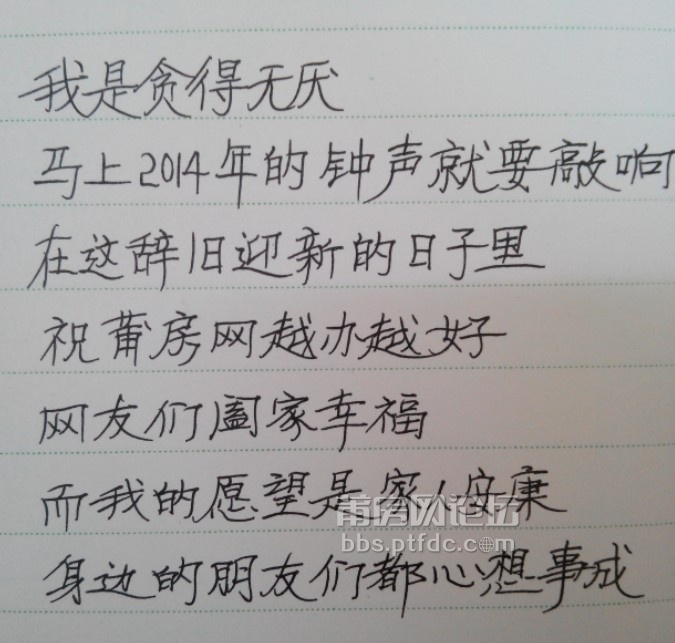 我是贪得无厌
马上2014年的钟声就要敲响
在这辞旧迎新的日子里
祝莆房网越办越好
网友们阖家幸福
而我的愿望是家人安康
莆房网论坛
bbs.ptfdc.com
身边的朋友们都心想事成